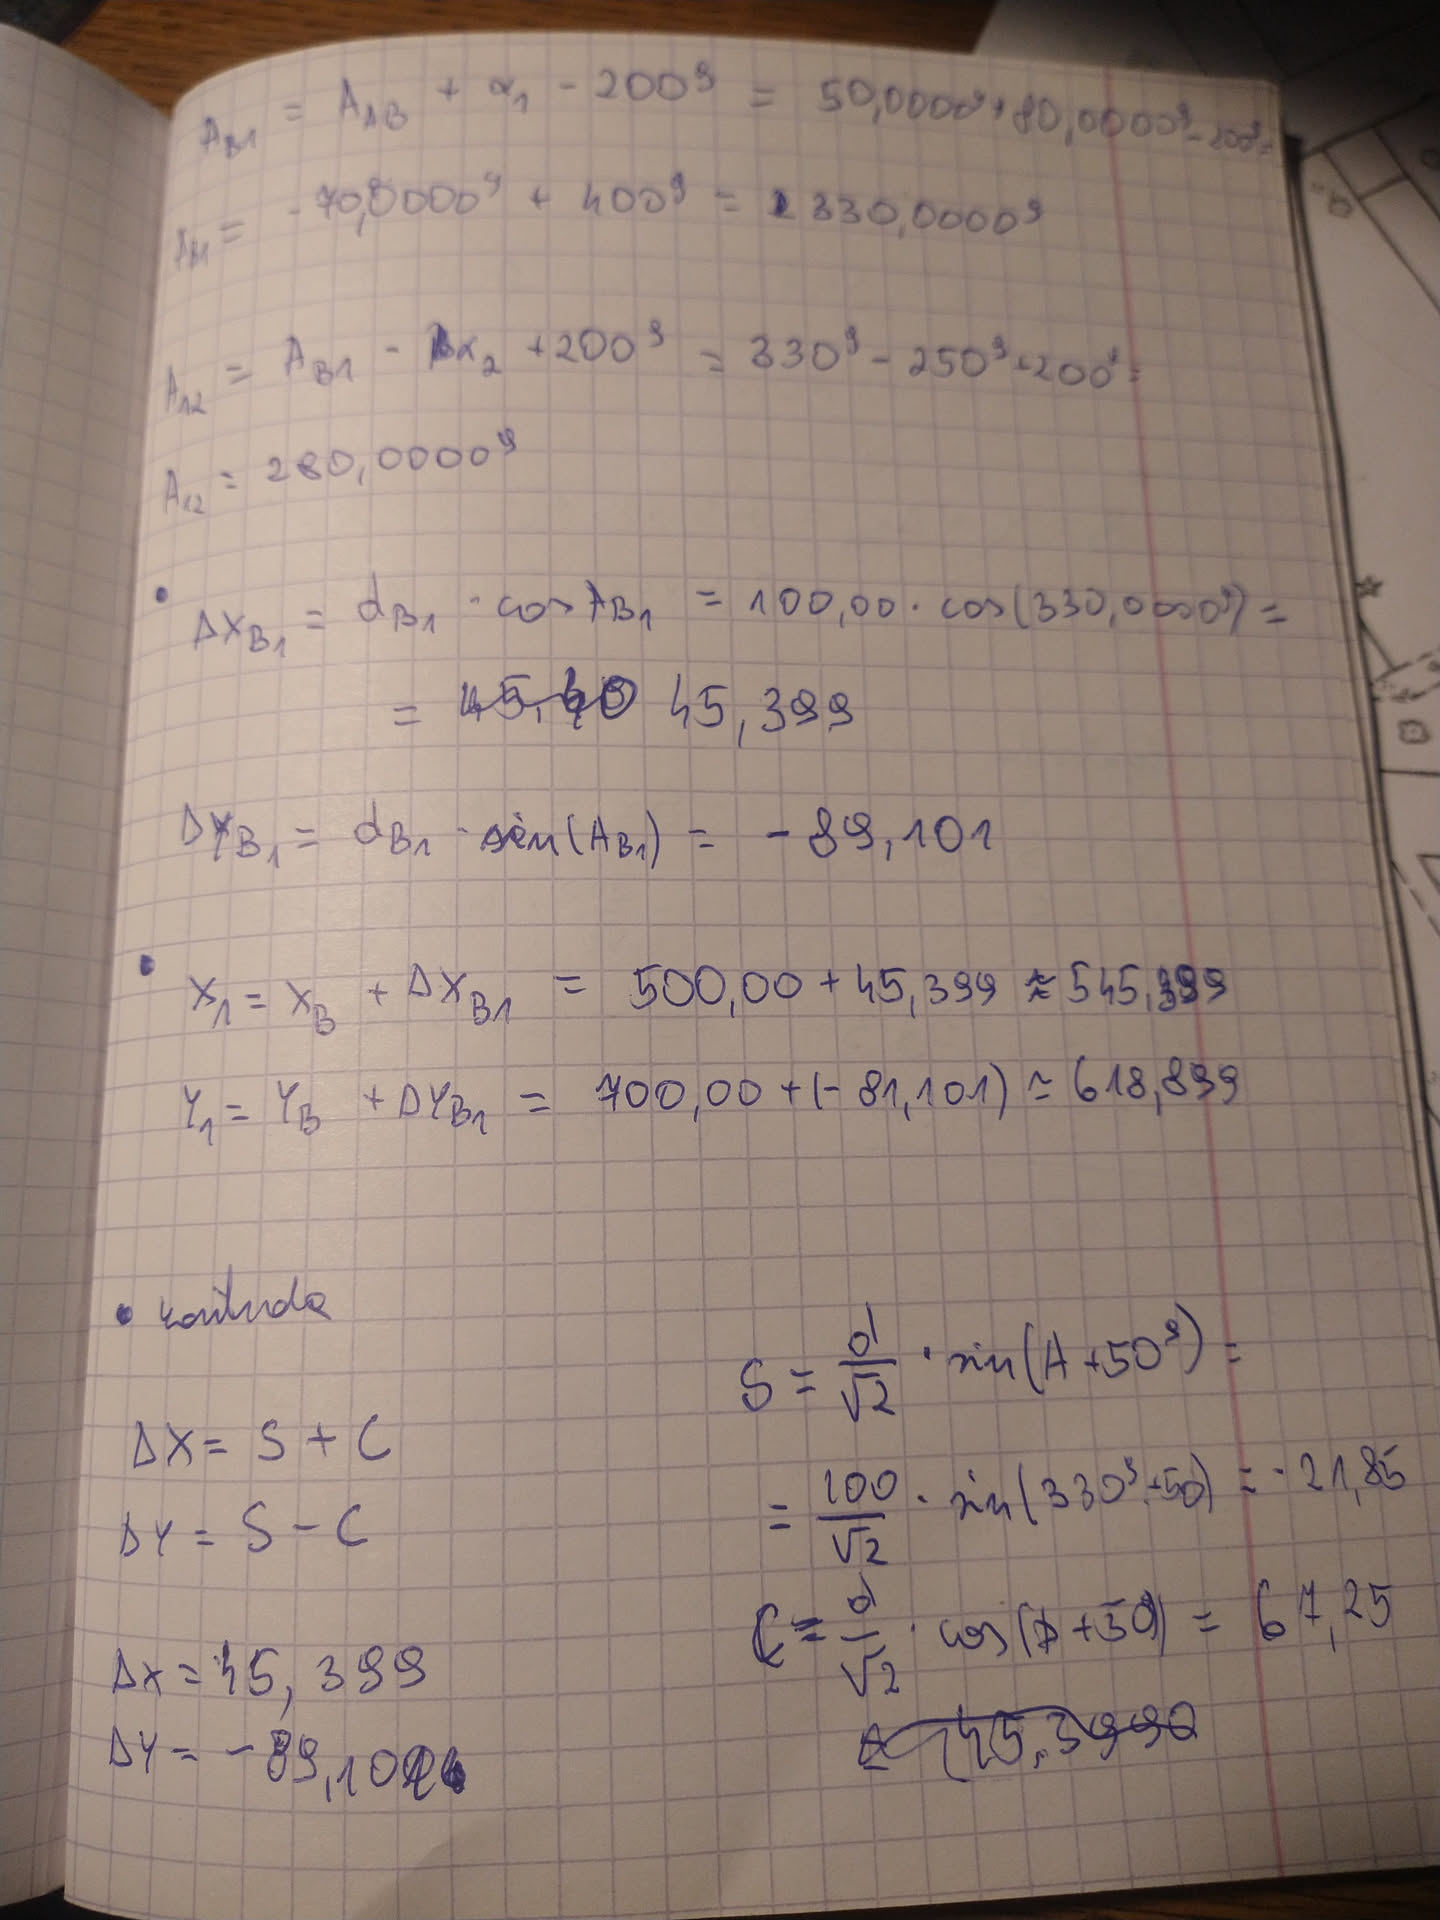 A_B1 = A_AB + α₁ - 200ᵍ = 50,0000ᵍ + 80,0000ᵍ - 200ᵍ =
A_B1 = -70,0000ᵍ + 400ᵍ = 330,0000ᵍ
A₁₂ = A_B1 - α₂ + 200ᵍ = 330ᵍ - 250ᵍ + 200ᵍ =
A₁₂ = 280,0000ᵍ
• ΔX_B1 = d_B1 · cos A_B1 = 100,00 · cos(330,0000ᵍ) =
= 45,40 45,399
ΔY_B1 = d_B1 · sin(A_B1) = -89,101
• X₁ = X_B + ΔX_B1 = 500,00 + 45,399 ≈ 545,399
Y₁ = Y_B + ΔY_B1 = 700,00 + (-81,101) ≈ 618,899
• kontrola
ΔX = S + C
ΔY = S - C
ΔX = 45,399
ΔY = -89,101
S = d/√2 · sin(A + 50ᵍ) =
= 100/√2 · sin(330ᵍ + 50) = -21,85
C = d/√2 · cos(A + 50ᵍ) = 67,25
45,3990